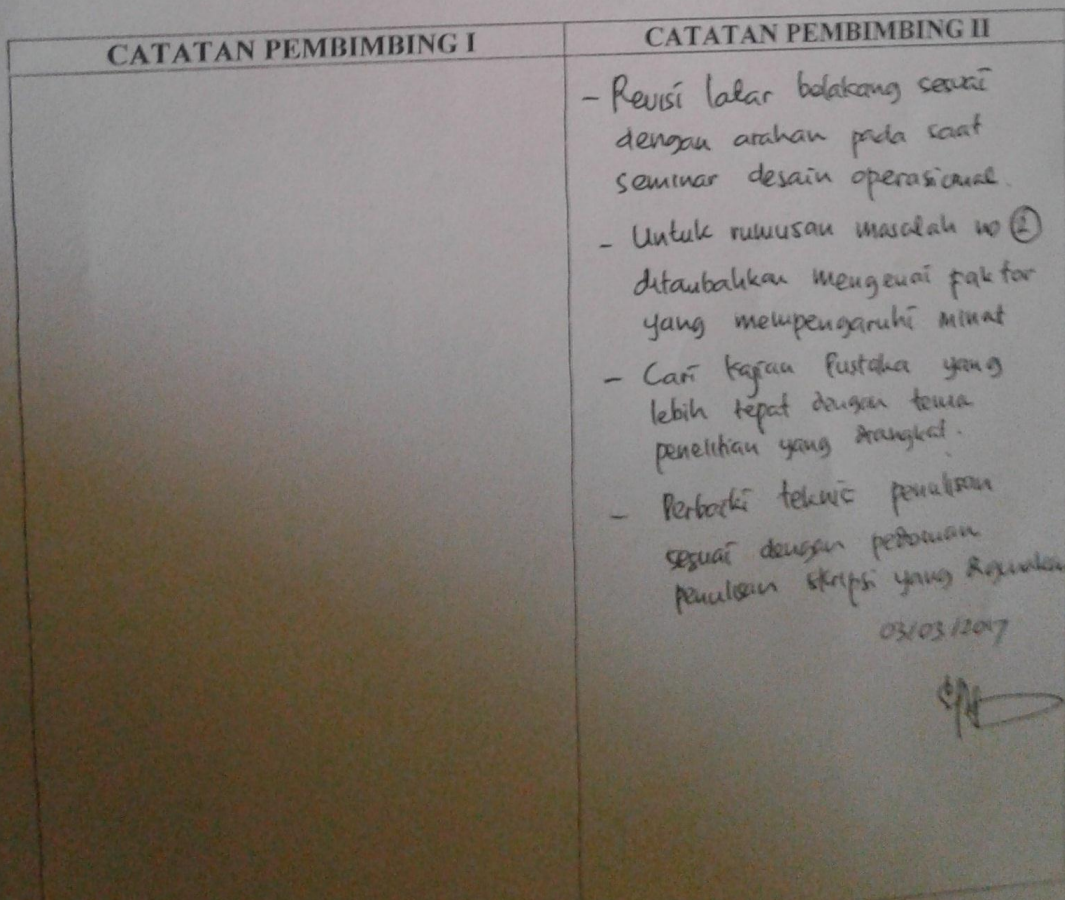 CATATAN PEMBIMBING I
CATATAN PEMBIMBING II
- Revisi latar belakang sesuai
dengan arahan pada saat
seminar desain operasional.
- Untuk rumusan masalah no ②
ditambahkan mengenai faktor
yang mempengaruhi minat
- Cari kajian Pustaka yang
lebih tepat dengan tema
penelitian yang diangkat.
- Perbaiki teknic penulisan
sesuai dengan pedoman
penulisan skripsi yang digunakan
03/03/2017